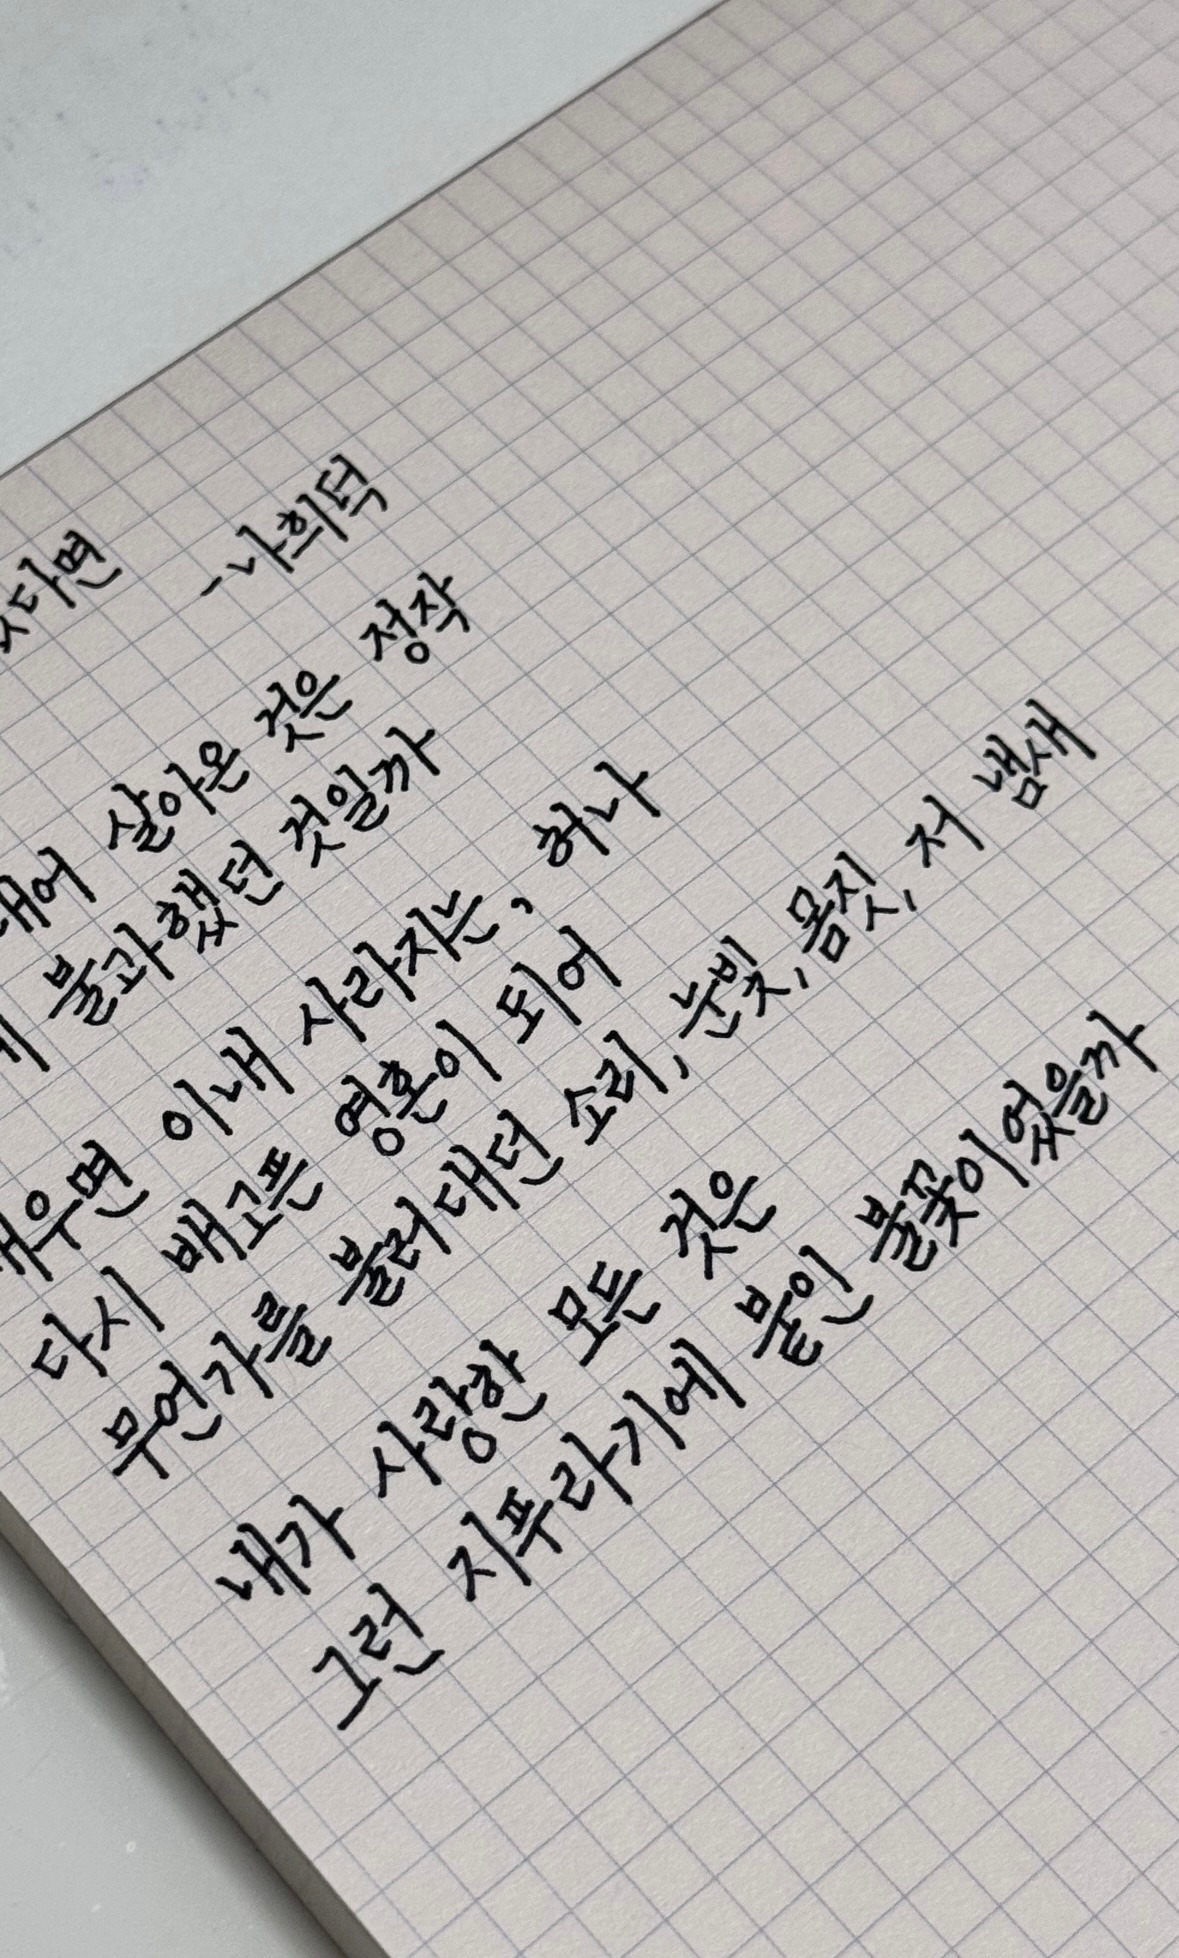 다면 -나희덕
대어 살아온 것은 정작
불과했던 것일까
태우면 이내 사라지는, 허나
다시 배고픈 영혼이 되어
무언가를 불러대던 소리, 눈빛, 몸짓, 저 냄새
내가 사랑한 모든 것은
그런 지푸라기에 붙인 불꽃이었을까